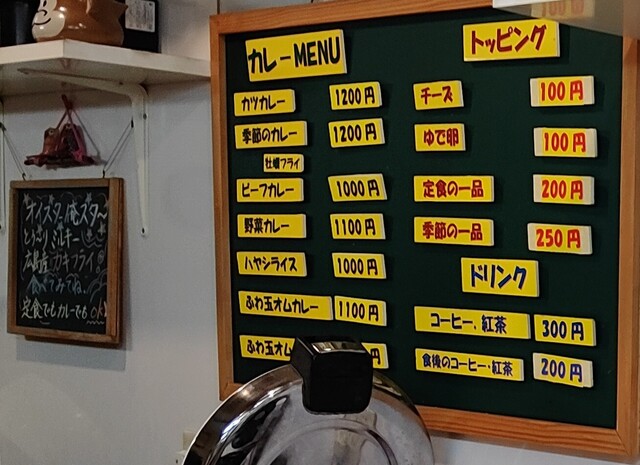 カレーMENU
カツカレー 1200円
季節のカレー 1200円
牡蠣フライ
ビーフカレー 1000円
野菜カレー 1100円
ハヤシライス 1000円
ふわ玉オムカレー 1100円
ふわ玉オム 円
トッピング
チーズ 100円
ゆで卵 100円
定食の一品 200円
季節の一品 250円
ドリンク
コーヒー.紅茶 300円
食後のコーヒー・紅茶 200円
オイスター俺スター
とろーりミルキー
広島産カキフライ
食べてみてね。
定食でもカレーでもOK!